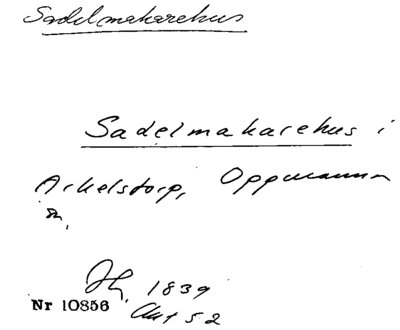 Sadelmakarehus
Sadelmakarehus i
Arkelstorp, Oppmanna
sn.
Jh. 1839
Nr 10856 Akt 52